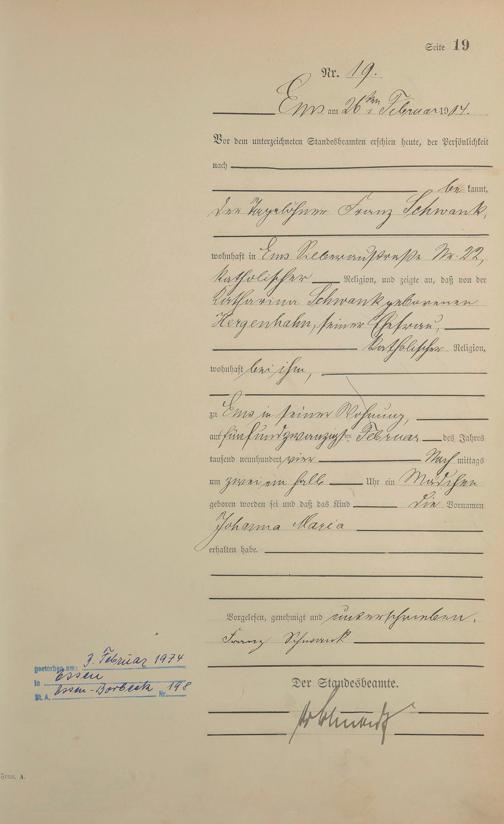 Seite 19
Nr. 19.
Ems am 26ten Februar 1904.
Vor dem unterzeichneten Standesbeamten erschien heute, der Persönlichkeit
nach
be kannt,
der Tagelöhner Franz Schwank,
wohnhaft in Ems Silberaustraße Nr. 22,
katholischer Religion, und zeigte an, daß von der
Katharina Schwank geborenen
Hergenhahn, seiner Ehefrau,
katholischer Religion,
wohnhaft bei ihm,
zu Ems in seiner Wohnung,
am fünfundzwanzigsten Februar des Jahres
tausend neunhundert vier Nach mittags
um zwei ein halb Uhr ein Mädchen
geboren worden sei und daß das Kind die Vornamen
Johanna Maria
erhalten habe.
Vorgelesen, genehmigt und unterschrieben.
Franz Schwank
Der Standesbeamte.
gestorben am: 3. Februar 1974
in Essen
St. A. Essen-Borbeck Nr. 198
Form. A.